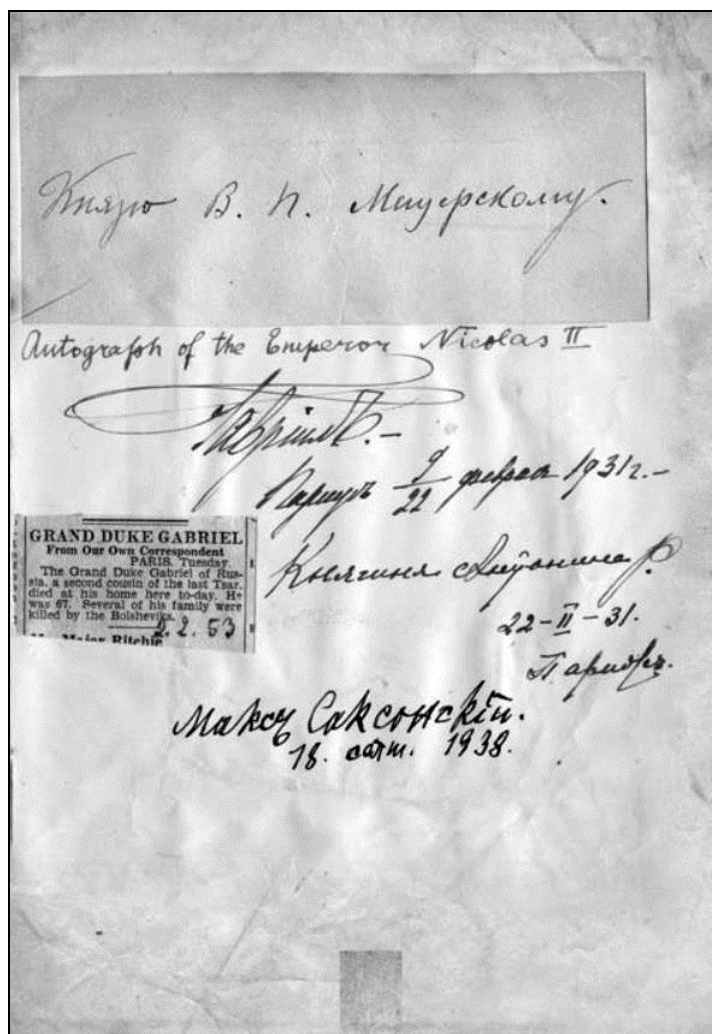 Князю В. П. Мещерскому.
Autograph of the Emperor Nicolas II
Гавріилъ.–
Парижъ 9/22 февраля 1931г.–
GRAND DUKE GABRIEL
From Our Own Correspondent
PARIS, Tuesday.
The Grand Duke Gabriel of Rus-
sia, a second cousin of the last Tsar,
died at his home here to-day. He
was 67. Several of his family were
killed by the Bolsheviks.
2.2.53
Major Ritchie
Княгиня Антонина Р.
22-II-31.
Парижъ.
Максъ Саксонскій.
18. сент. 1938.